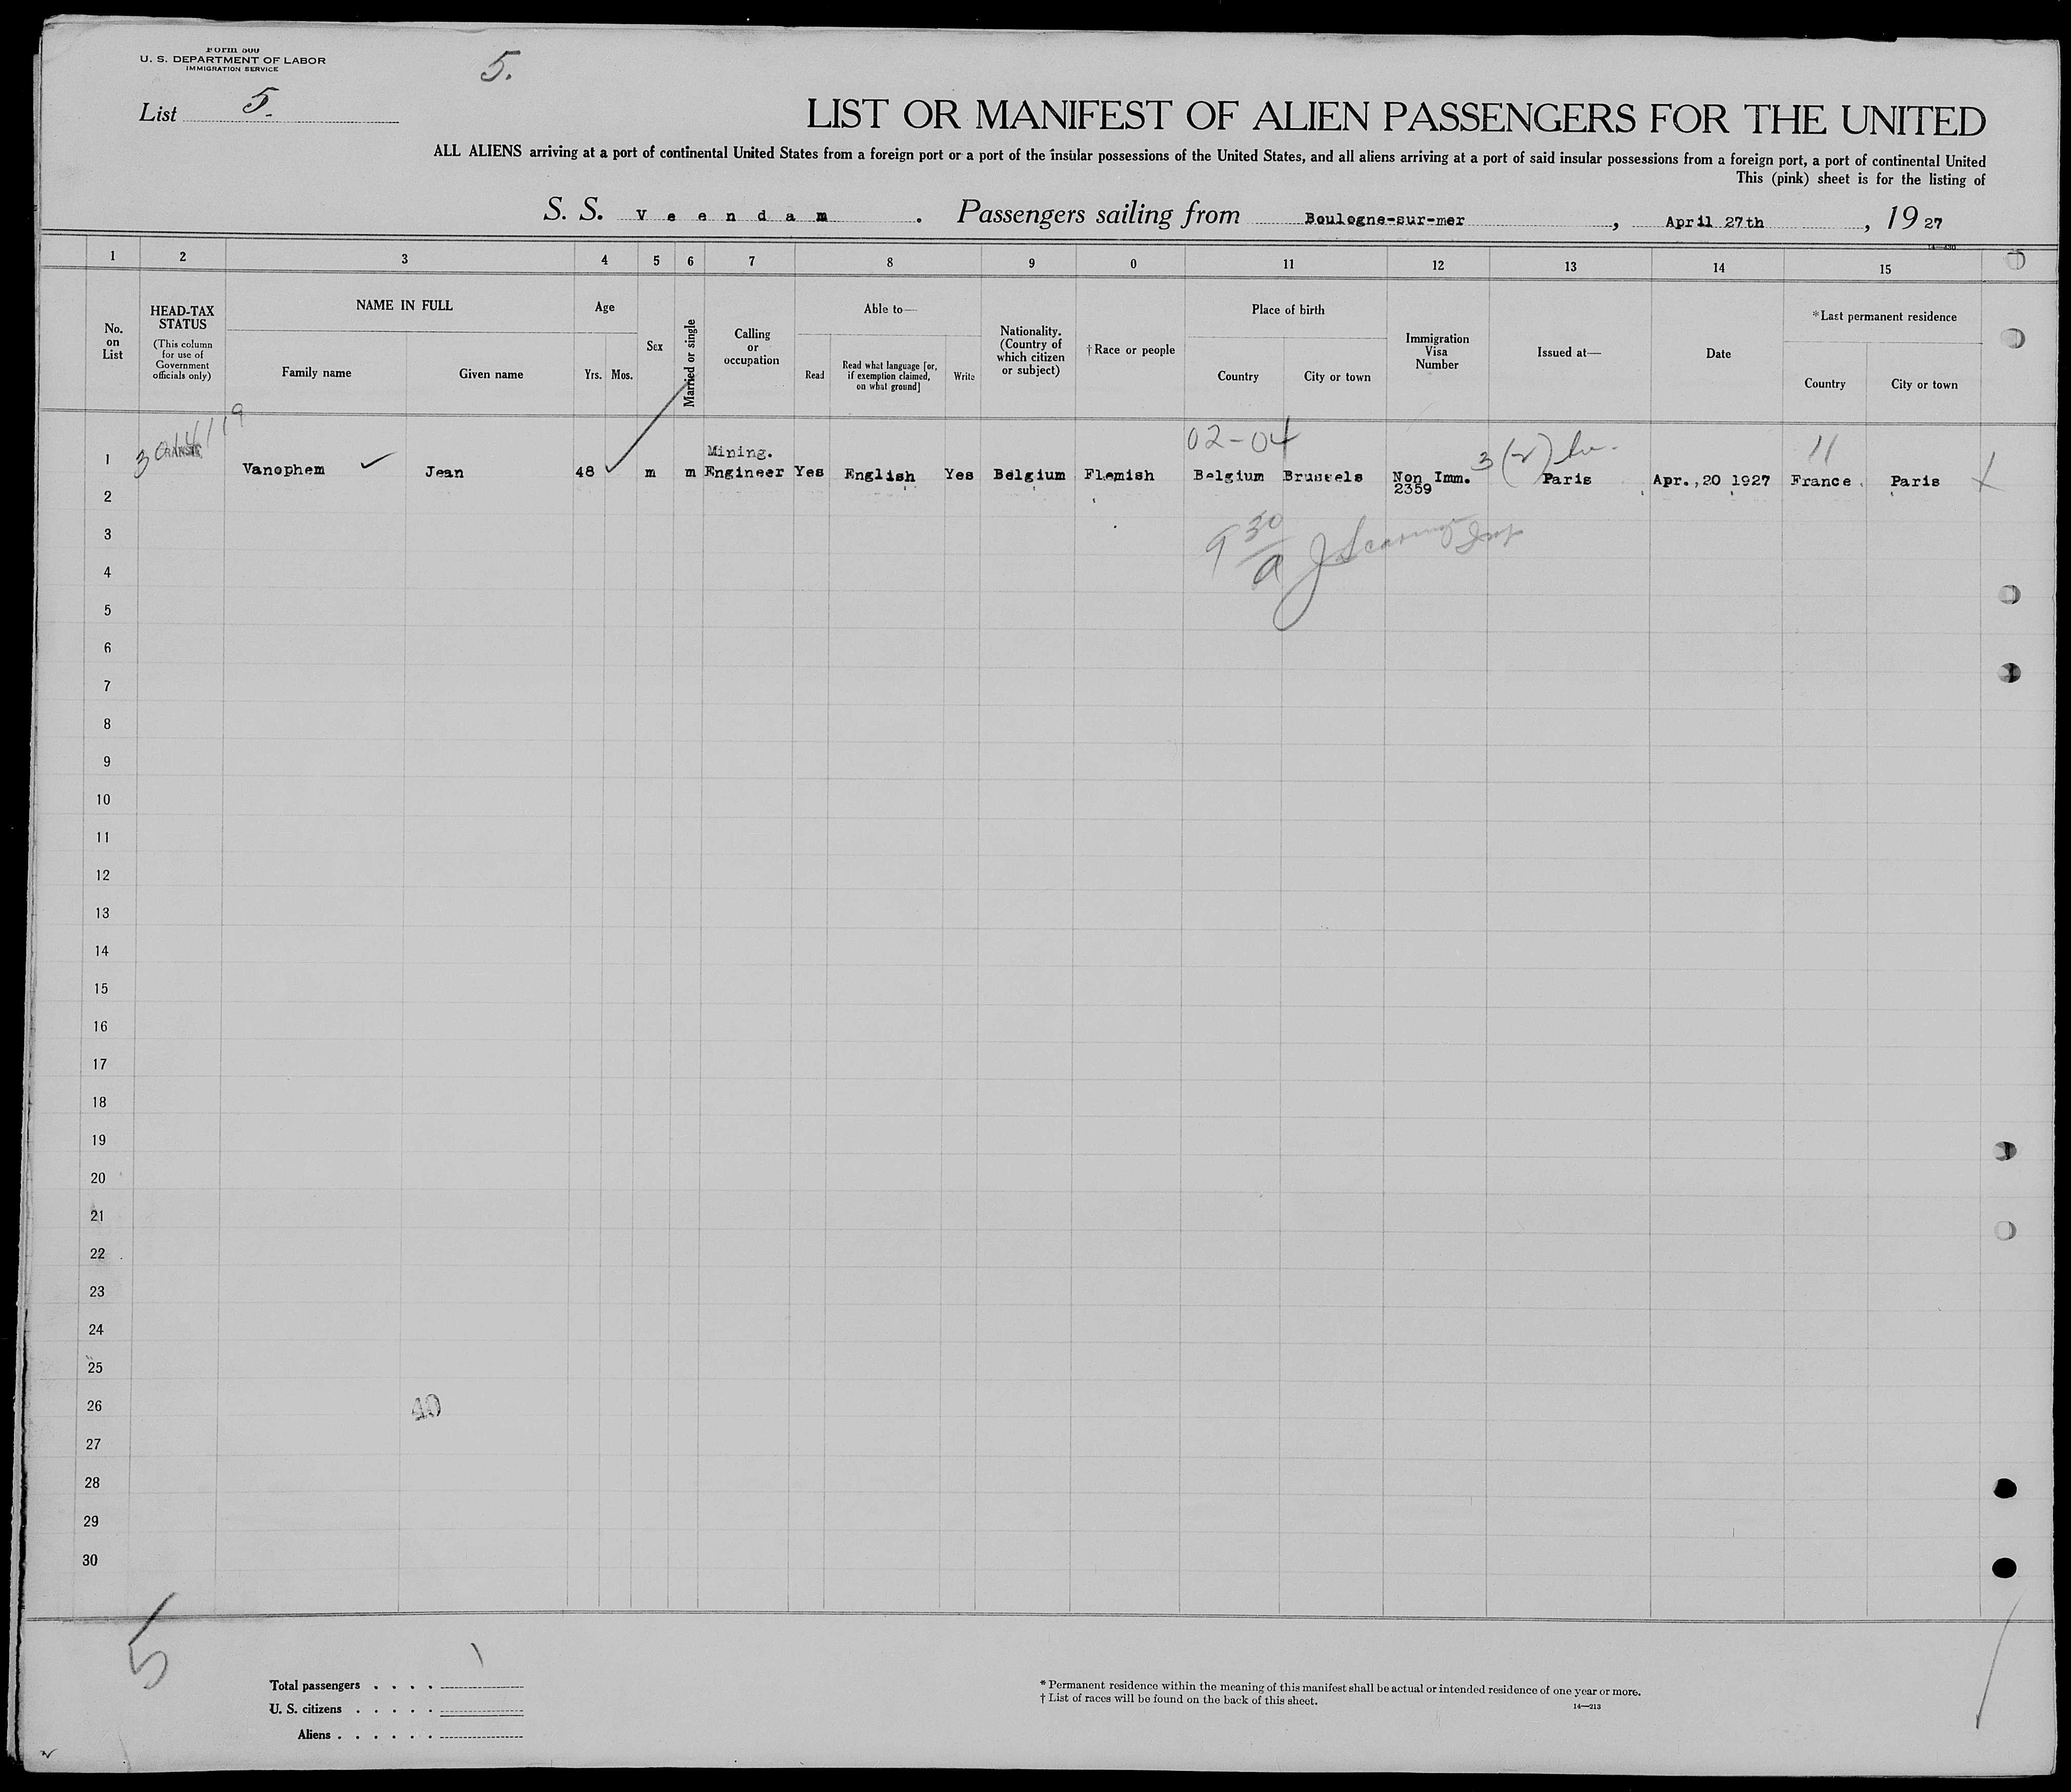 Form 500
U. S. DEPARTMENT OF LABOR
IMMIGRATION SERVICE
5.
List 5.
LIST OR MANIFEST OF ALIEN PASSENGERS FOR THE UNITED
ALL ALIENS arriving at a port of continental United States from a foreign port or a port of the insular possessions of the United States, and all aliens arriving at a port of said insular possessions from a foreign port, a port of continental United
This (pink) sheet is for the listing of
S. S. V e e n d a m . Passengers sailing from Boulogne-sur-mer , April 27th , 19 27
1 2 3 4 5 6 7 8 9 0 11 12 13 14 15
No. on List
HEAD-TAX STATUS
(This column for use of Government officials only)
NAME IN FULL
Family name Given name
Age
Yrs. Mos.
Sex
Married or single
Calling or occupation
Able to—
Read
Read what language [or, if exemption claimed, on what ground]
Write
Nationality. (Country of which citizen or subject)
†Race or people
Place of birth
Country City or town
Immigration Visa Number
Issued at—
Date
*Last permanent residence
Country City or town
02-04
1 TRANSIT Vanophem Jean 48 m m Mining. Engineer Yes English Yes Belgium Flemish Belgium Brussels Non Imm. 2359 Paris Apr.,20 1927 France Paris
2
3
4
5
6
7
8
9
10
11
12
13
14
15
16
17
18
19
20
21
22
23
24
25
26
40
27
28
29
30
5
Total passengers . . . . 1
U. S. citizens . . . . .
Aliens . . . . . .
* Permanent residence within the meaning of this manifest shall be actual or intended residence of one year or more.
† List of races will be found on the back of this sheet.
14—213